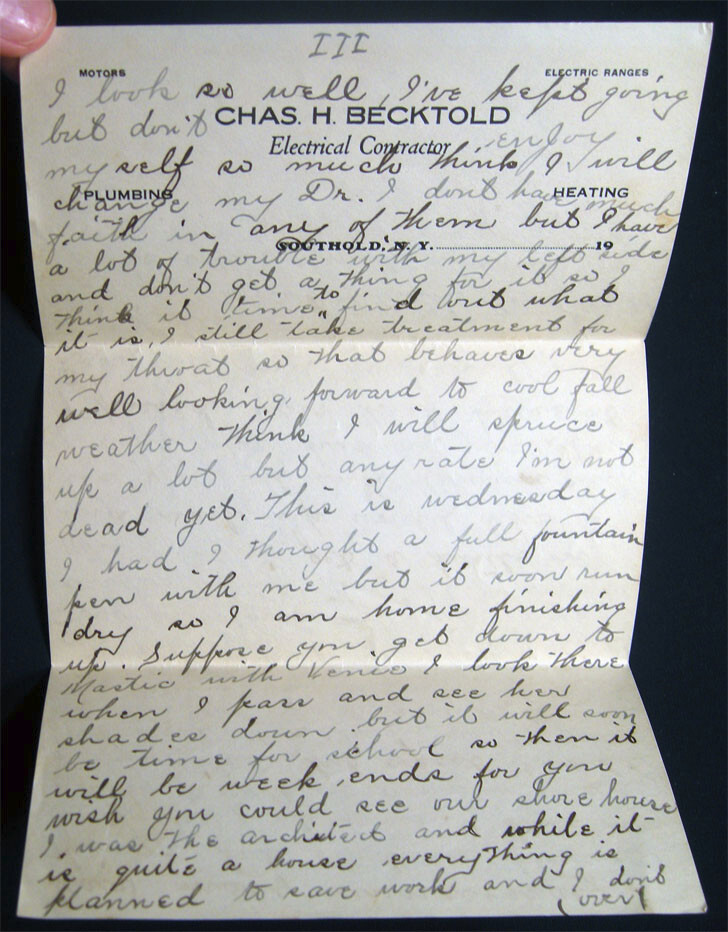 III
MOTORS ELECTRIC RANGES
I look so well, I've kept going
but don't CHAS. H. BECKTOLD
Electrical Contractor enjoy
myself so much think I will
PLUMBING HEATING
change my Dr. I dont have much
faith in any of them but I have
SOUTHOLD, N. Y. 19
a lot of trouble with my left side
and don't get a thing for it so I
think it time to find out what
it is, I still take treatment for
my throat so that behaves very
well looking forward to cool fall
weather think I will spruce
up a lot but any rate I'm not
dead yet. This is wednesday
I had I thought a full fountain
pen with me but it soon run
dry so I am home finishing
up. Suppose you get down to
Mastic with I look there
when I pass and see her
shades down but it will soon
be time for school so then it
will be week ends for you
wish you could see our shore house
I was the architect and while it
is quite a house everything is
planned to save work and I don't
(over)